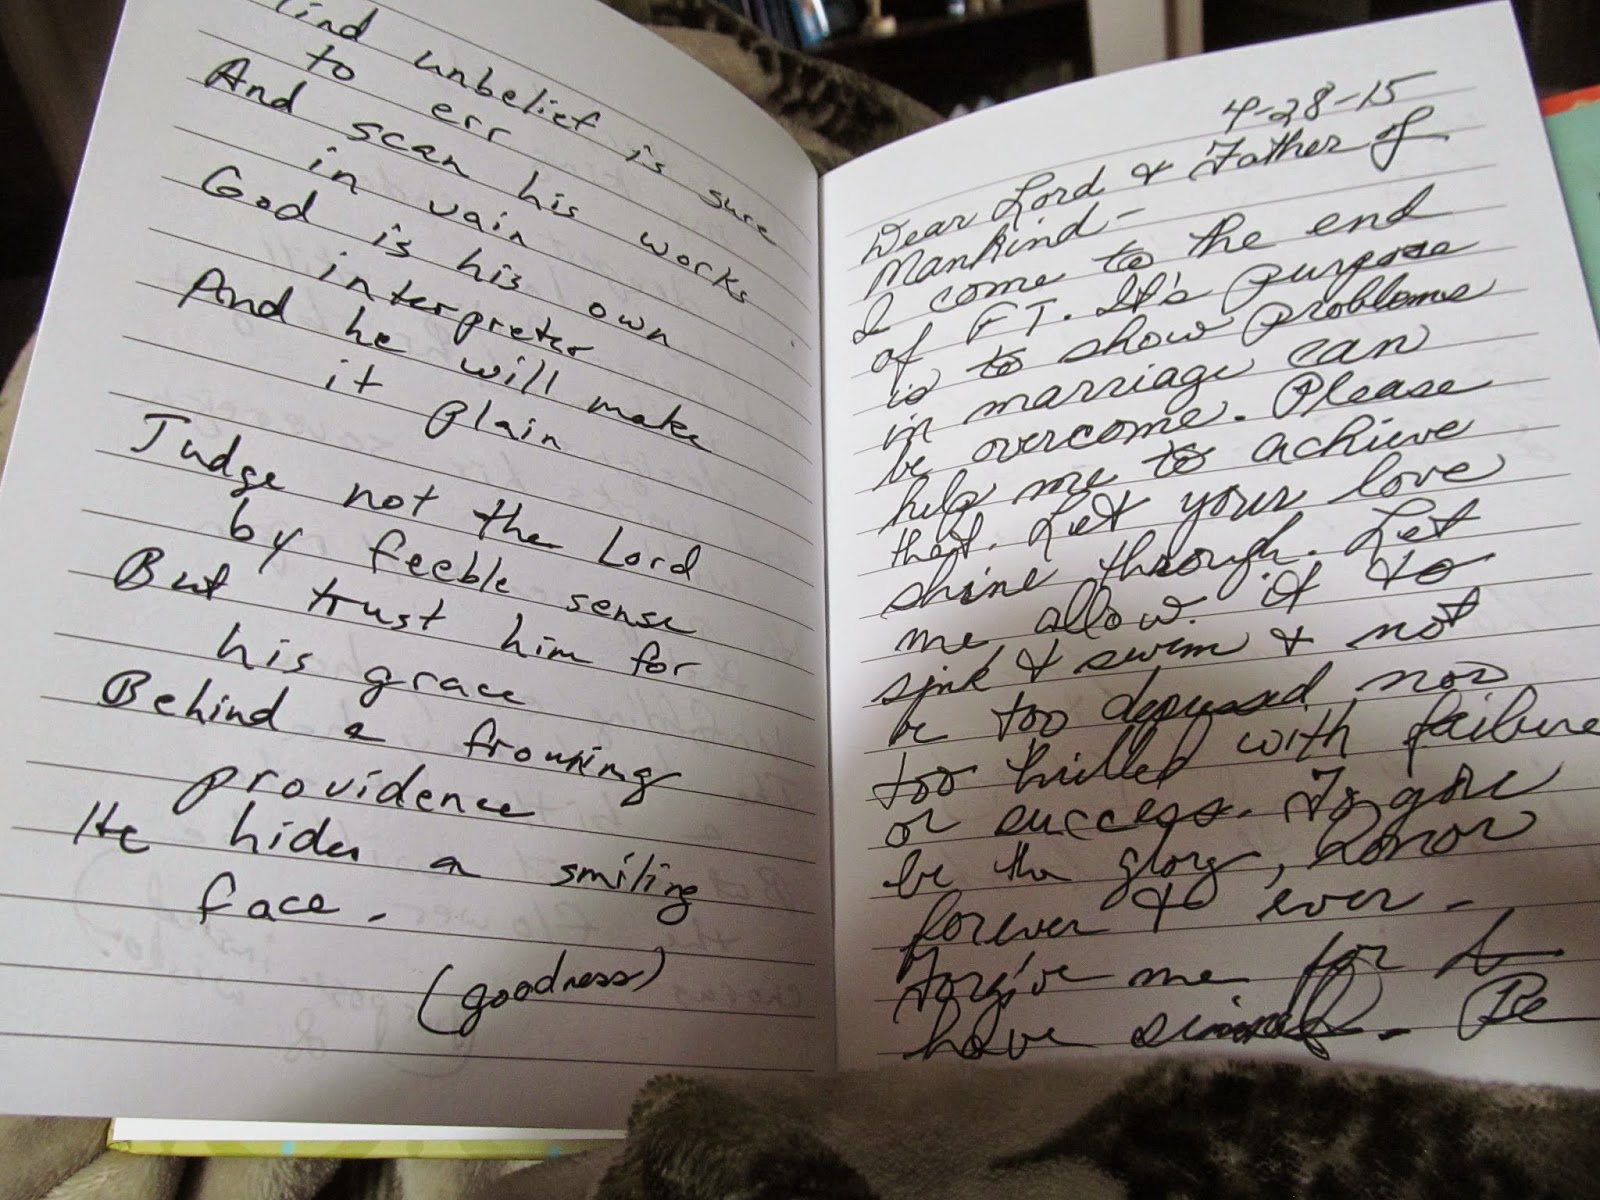 lind unbelief is sure
to err
And scan his works
in vain
God is his own
interpreter
And he will make
it plain
Judge not the Lord
by feeble sense
But trust him for
his grace
Behind a frowning
providence
He hides a smiling
face.
(goodness)
4-28-15
Dear Lord & Father of
Mankind -
I come to the end
of FT. It's purpose
is to show problems
in marriage can
be overcome. Please
help me to achieve
that. Let your love
shine through. Let
me allow it to
sink & swim & not
be too depressed nor
too thrilled with failure
or success. To you
be the glory, honor
forever & ever -
Forgive me for I
have sinned. Be